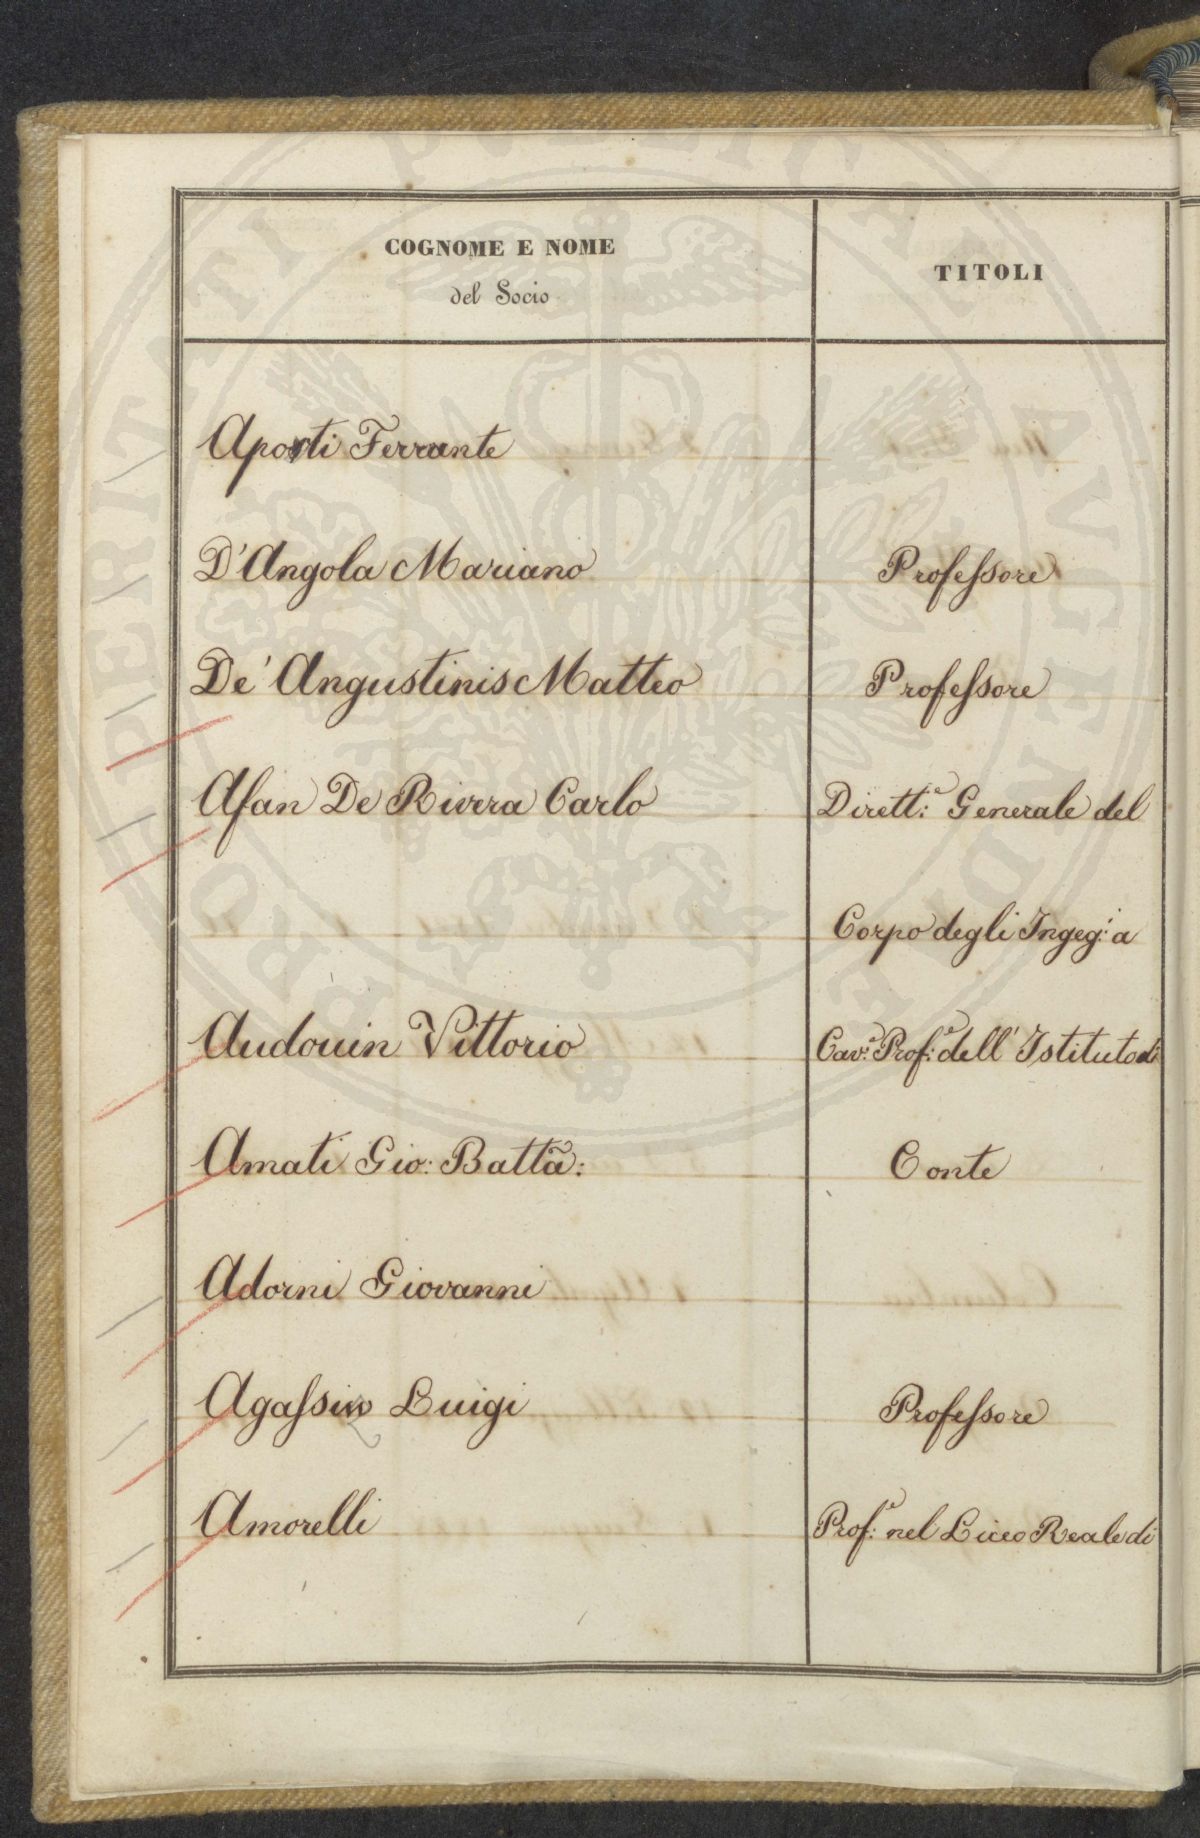 COGNOME E NOME
del Socio
TITOLI
Aporti Ferrante
D'Angola Mariano Professore
De' Angustinis Matteo Professore
Afan De Rivera Carlo Dirett.e Generale del
Corpo degli Ingeg.i a
Audouin Vittorio Cav.e Prof.e dell' Istituto di
Amati Gio: Batta: Conte
Adorni Giovanni
Agassiz Luigi Professore
Amorelli Prof.e nel Liceo Reale di